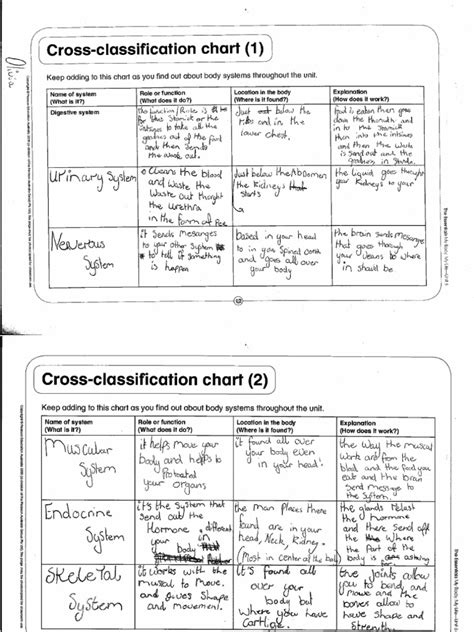 Olivia
Cross-classification chart (1)
Keep adding to this chart as you find out about body systems throughout the unit.
Name of system
(What is it?)
Role or function
(What does it do?)
Location in the body
(Where is it found?)
Explanation
(How does it work?)
Digestive system
the function/Role is
for this Stomick or the
to take all the
out of the food
and then Send to
the wock out.
Just below the
ribs and in the
lower chest.
food is eaten then goes
down the throuth and
in to the Stomick
then into the intsines
and then the
is Sand out and the
goodness is
Urinary System
Cleans the blood
and waste the
Waste out throght
the Urethra
in the form of Pee
Just below the Abdomen
the Kidneys
starts
the liquid goes thought
your Kidneys to your
Nerverus
System
it Sends Mesanges
to your other System
to tell if something
is happen
based in your head
to in your Spined cord
and goes all over
your body
the brain sends Mesanges
that goes thorough
your to where
in should be.
12
Cross-classification chart (2)
Keep adding to this chart as you find out about body systems throughout the unit.
Name of system
(What is it?)
Role or function
(What does it do?)
Location in the body
(Where is it found?)
Explanation
(How does it work?)
Muscular
System
it helps move your
body and helps to
Protated
your organs
it found all over
your body even
in your head.
the way the muscal
Work and from the
blod and the food you
eat and the brain
Send message to
the System.
Endocrine
System
it's the System that
Send out the
Hormone different
in your
body
the man Places there
found are in your
head, Neck, Kidney.
(Most in center of the body)
the glands relest
the hormone
and there Send off
the Where
the Part of the
body is asking
for
Skeletal
System
it works with the
muscal to Move.
and gives Shape
and Movement
it's found all
over your
body but
Where you have
Cartlige.
the Joints allow
you to bend, and
move and the
bones allow to
have Shape and
Strength